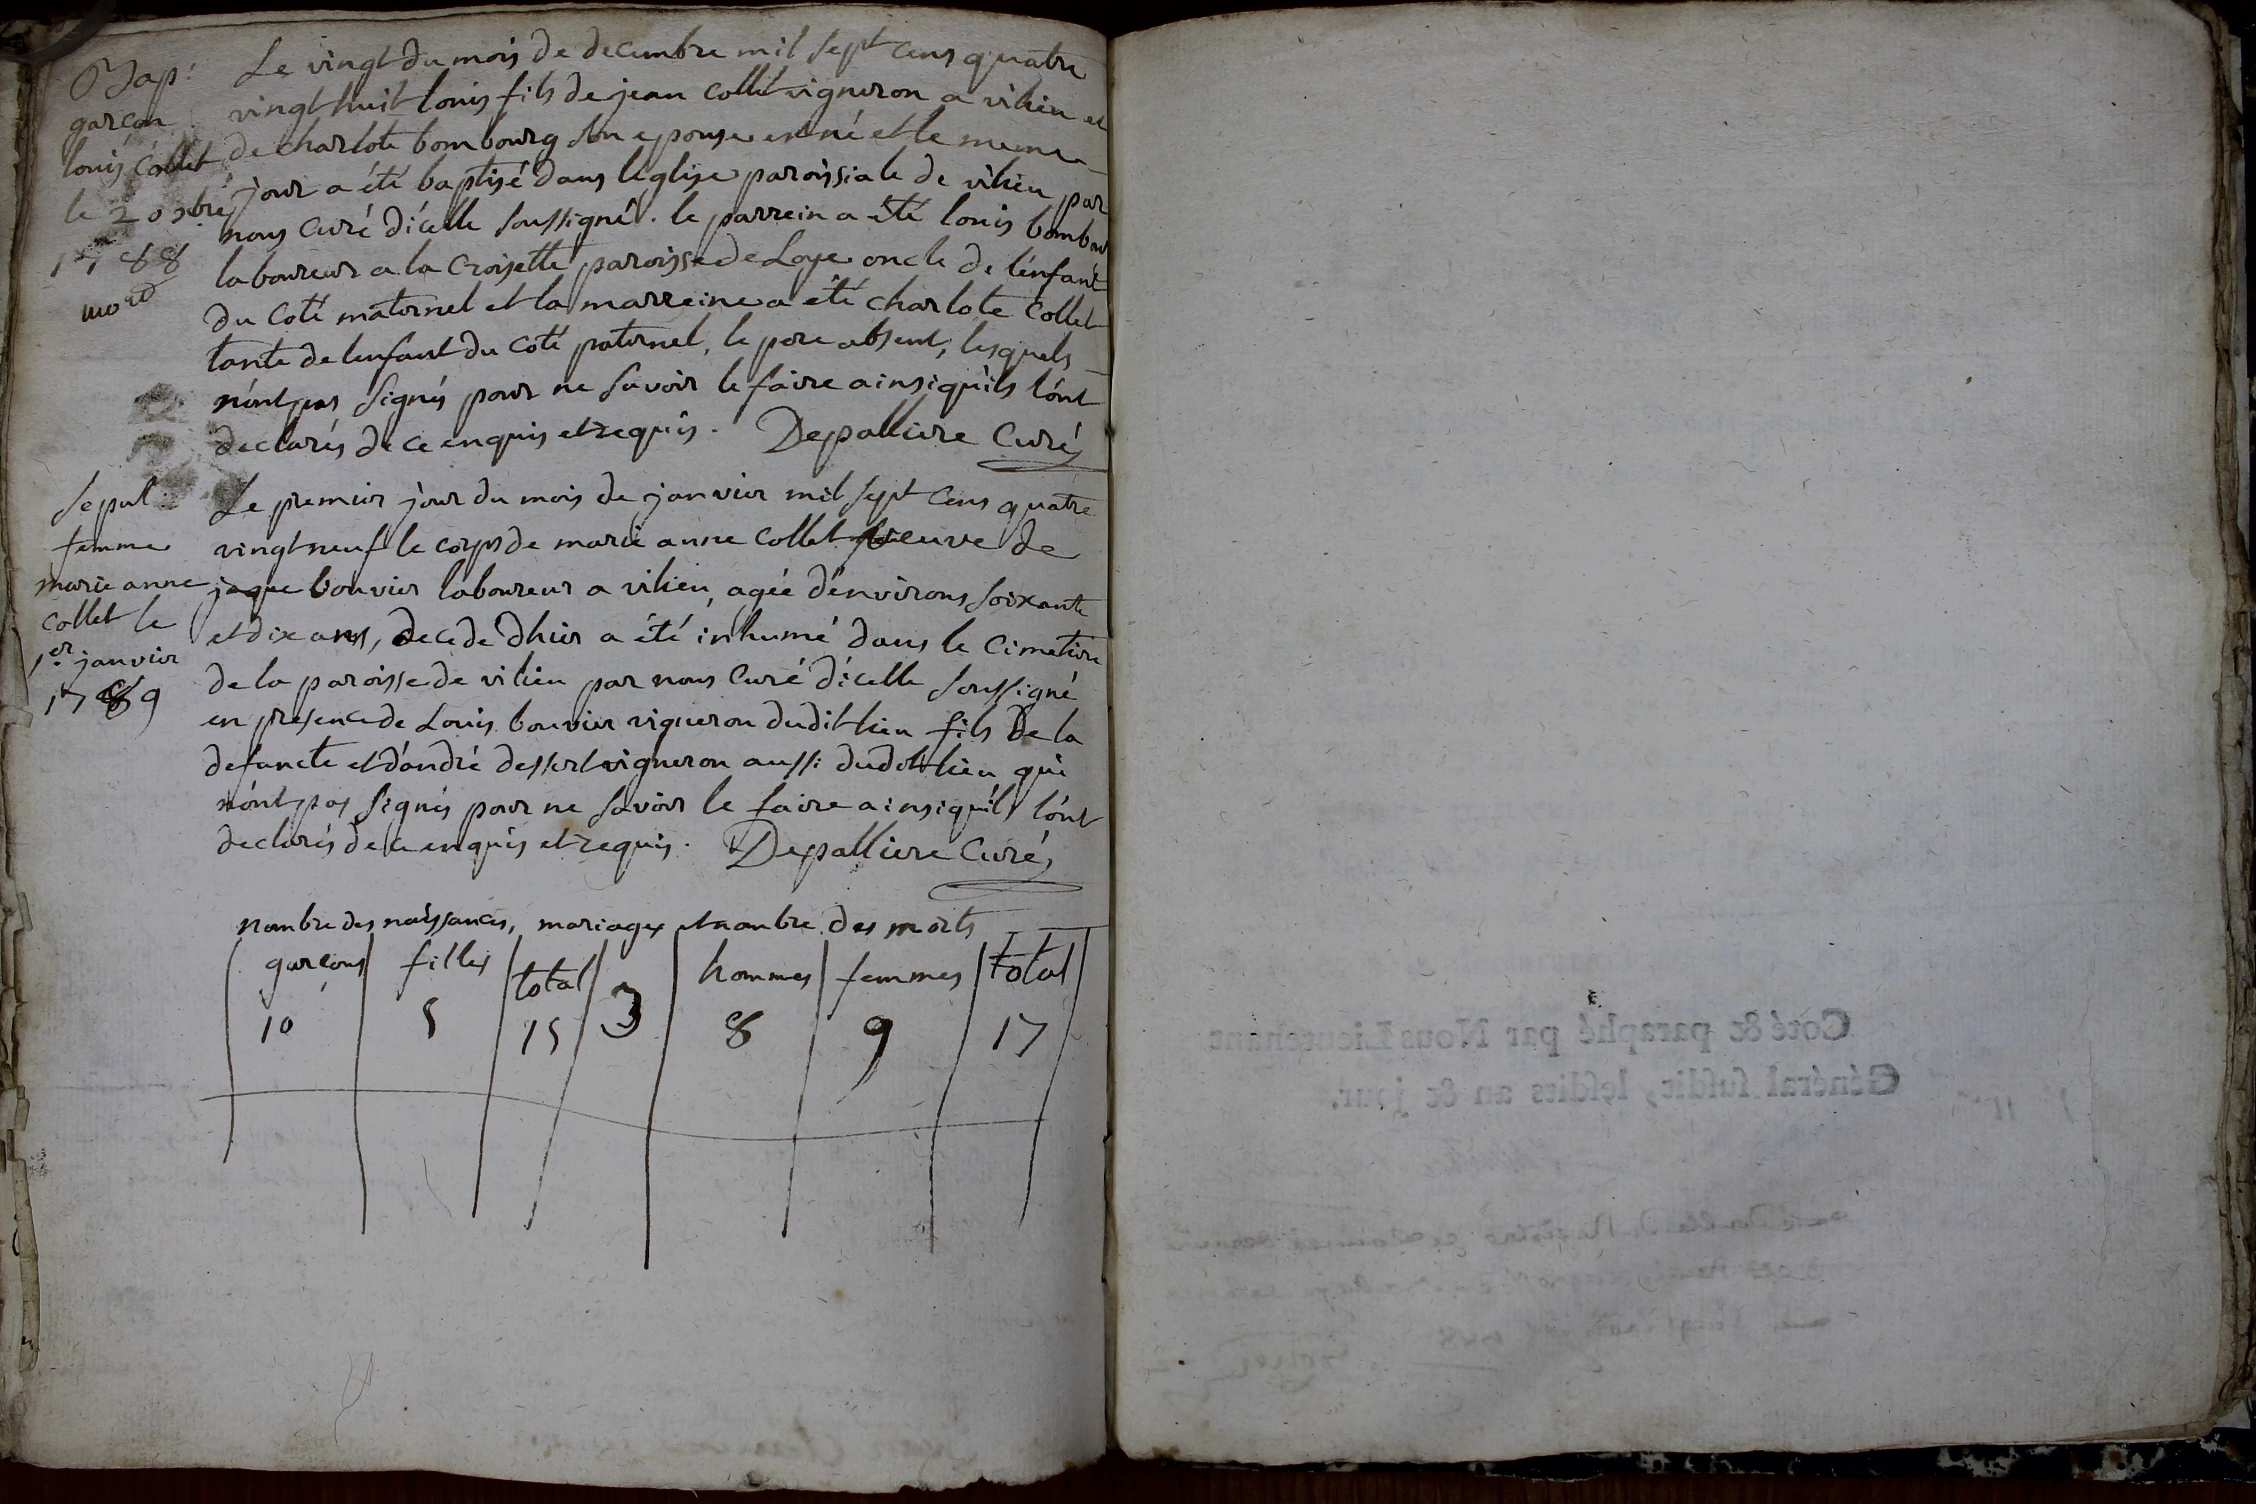 Bap:
garçon
louis Collet
le 20 xbre
1788
mort
Le vingt du mois de decembre mil sept cens quatre
vingt huit louis fils de jean Collet vigneron a vilieu et
de charlote bombourg son epouse est né et le meme
jour a été baptisé dans l'eglise paroissiale de vilieu par
nous Curé d'icelle soussigné. le parrein a été louis bombour
laboureur a la Croisette paroisse de Loye oncle de l'enfant
du Coté maternel et la marreine a été charlote Collet
tante de lenfant du Coté paternel, le pere absent, lesquels
n'ont pas signés pour ne savoir le faire ainsi qu'ils l'ont
declarés de ce enquis et requis. Depalliere Curé
sepul:
femme
marie anne
Collet le
1er janvier
1789
Le premier jour du mois de janvier mil sept cens quatre
vingt neuf le corps de marie anne Collet veuve de
jaque bouvier laboureur a vilieu, agée d'environs soixante
et dix ans, decede dhier a été inhumé dans le Cimetiere
de la paroisse de vilieu par nous Curé d'icelle soussigné
en presence de Louis bouvier vigneron dudit lieu fils De la
defuncte et d'andré dessert vigneron aussi dudit lieu qui
n'ont pas signés pour ne savoir le faire ainsi qu'il l'ont
declarés de ce enquis et requis. Depalliere Curé
nombre des naissances, mariages et nombre des morts
garçons filles total hommes femmes total
10 5 15 3 8 9 17
Coté & paraphé par Nous Lieutenant
Général susdit, lesdits an & jour.